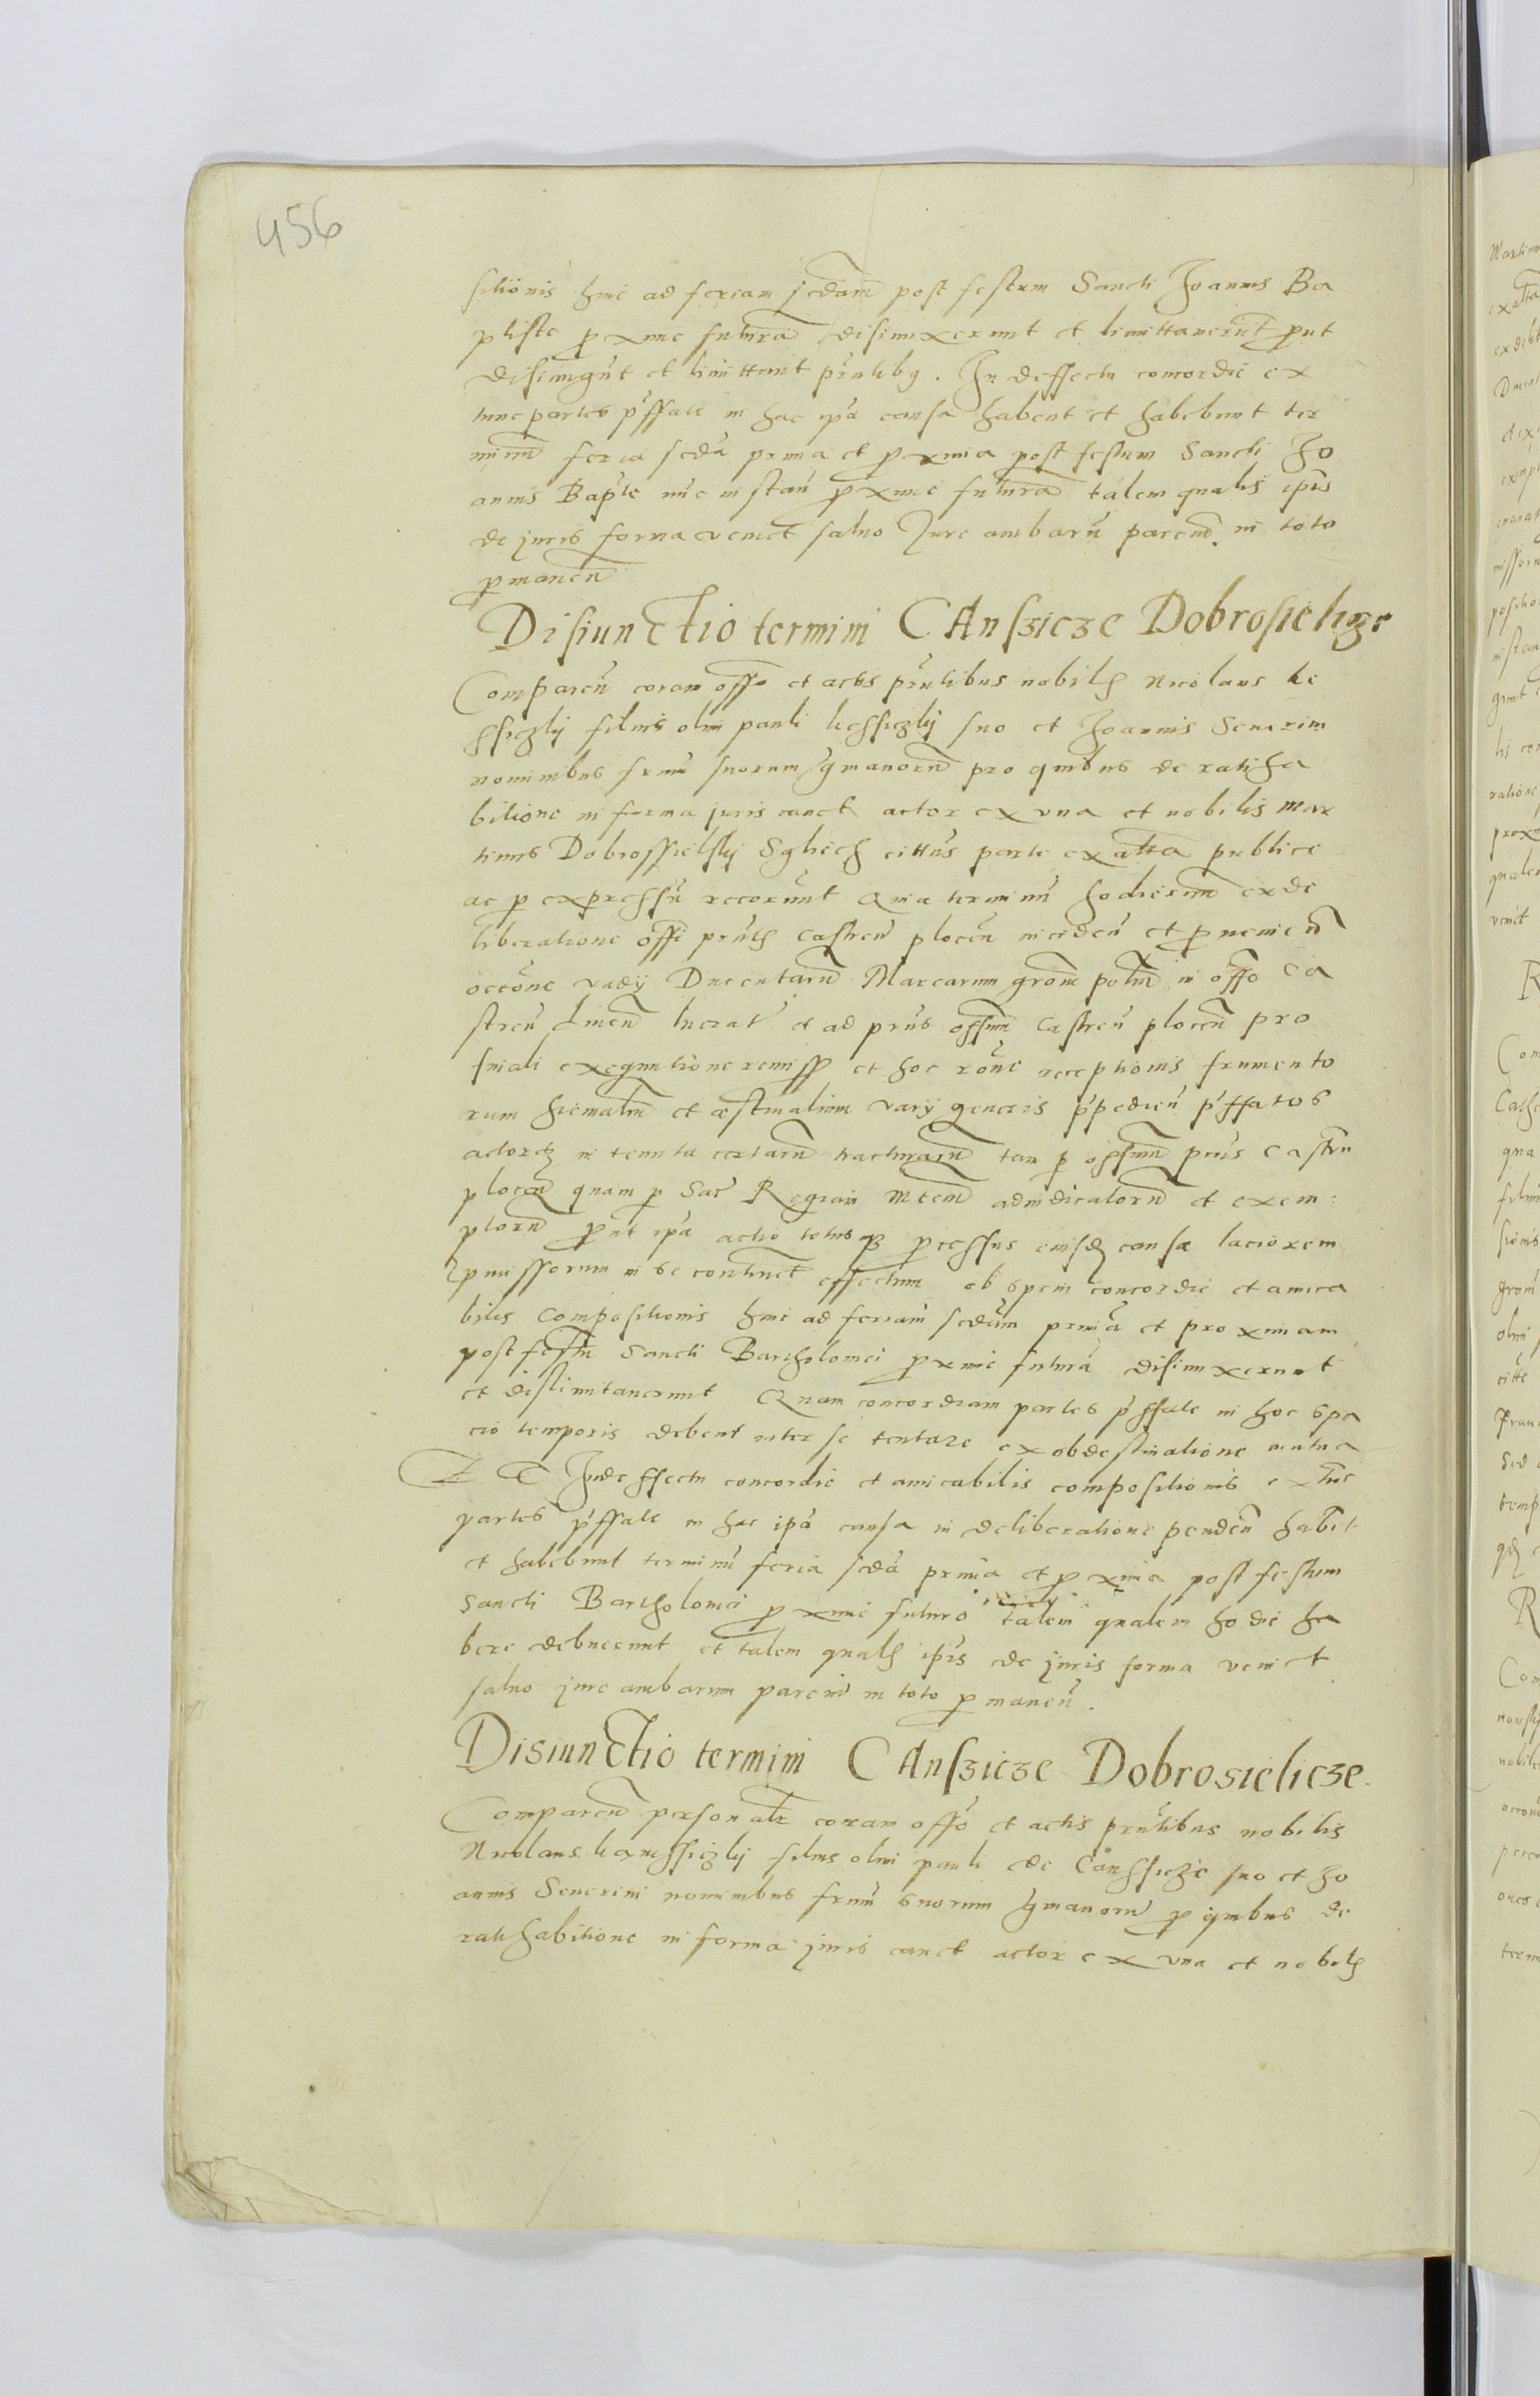 456
sitionis hinc ad feriam scdam post festum Sancti Joannis Ba
ptiste proxime futura disiunxerunt et limittauerut prout
disiungut et limittant prntibus. In deffectu concordie ex
tunc partes pffate in hac ipa causa habent et habebunt ter
minu feria scda prima et proxima post festum Sancti Jo
annis Bapte nuc instan proxime futura talem qualis ipis
de juris forma veniet saluo Jure ambaru parciu in toto
permanen
Disiunctio termini CAnszicze Dobrosielicze
Comparen coram offo et actis prntibus nobilis Nicolaus
filius olim pauli suo et Joannis Seuerini
nominibus frum suorum germanoru pro quibus de ratiha
bitione in forma juris cauet actor ex vna et nobilis mar
tinus Dobrossielskij cittus parte ex altta publice
ac per expressu recorunt Quia terminu hodiernu ex de
liberatione offi prntis castren plocen inciden et prouenien
occone vadij Ducentaru Marcarum grom polm in offo Ca
stren lucrat et ad prns offium Castren plocen pro
finali exequutione remiss et hoc rone receptionis frumento
rum hiemaliu et æstiualium varij generis ppedien pffatos
actores in tenuta certaru tam per offium prns Castren
plocen quam per Sac Regiam Mtem adiudicatoru et exem
ptoru prout ipa actio totusque processus eiusdem causæ laciorem
premissorum in se continet effectum ob spem concordie et amica
bilis compositionis hinc ad feriam scdam prima et proximam
post festu Sancti Bartholomei proxime futura disiunxerunt
et dislimitauerunt Quam concordiam partes pffate in hoc spa
cio temporis debent inter se tentare ex obdestinatione mutua
In deffectu concordie et amicabilis compositionis ex tuc
partes pffate in hac ipa causa in deliberatione penden habet
et habebunt terminu feria scda prima et proxima post festum
Sancti Bartholomei proxime futuro talem qualem hodie ha
bere debuerunt et talem qualis ipis de juris forma veniet
saluo jure ambarum parciu in toto permanen.
Disiunctio termini CAnszicze Dobrosielicze.
Comparen personalr coram offo et actis prntibus nobilis
Nicolaus filius olim pauli de suo et Jo
annis Seuerini nominibus frum suorum germanoru pro quibus de
ratihabitione in forma juris cauet actor ex vna et nobilis